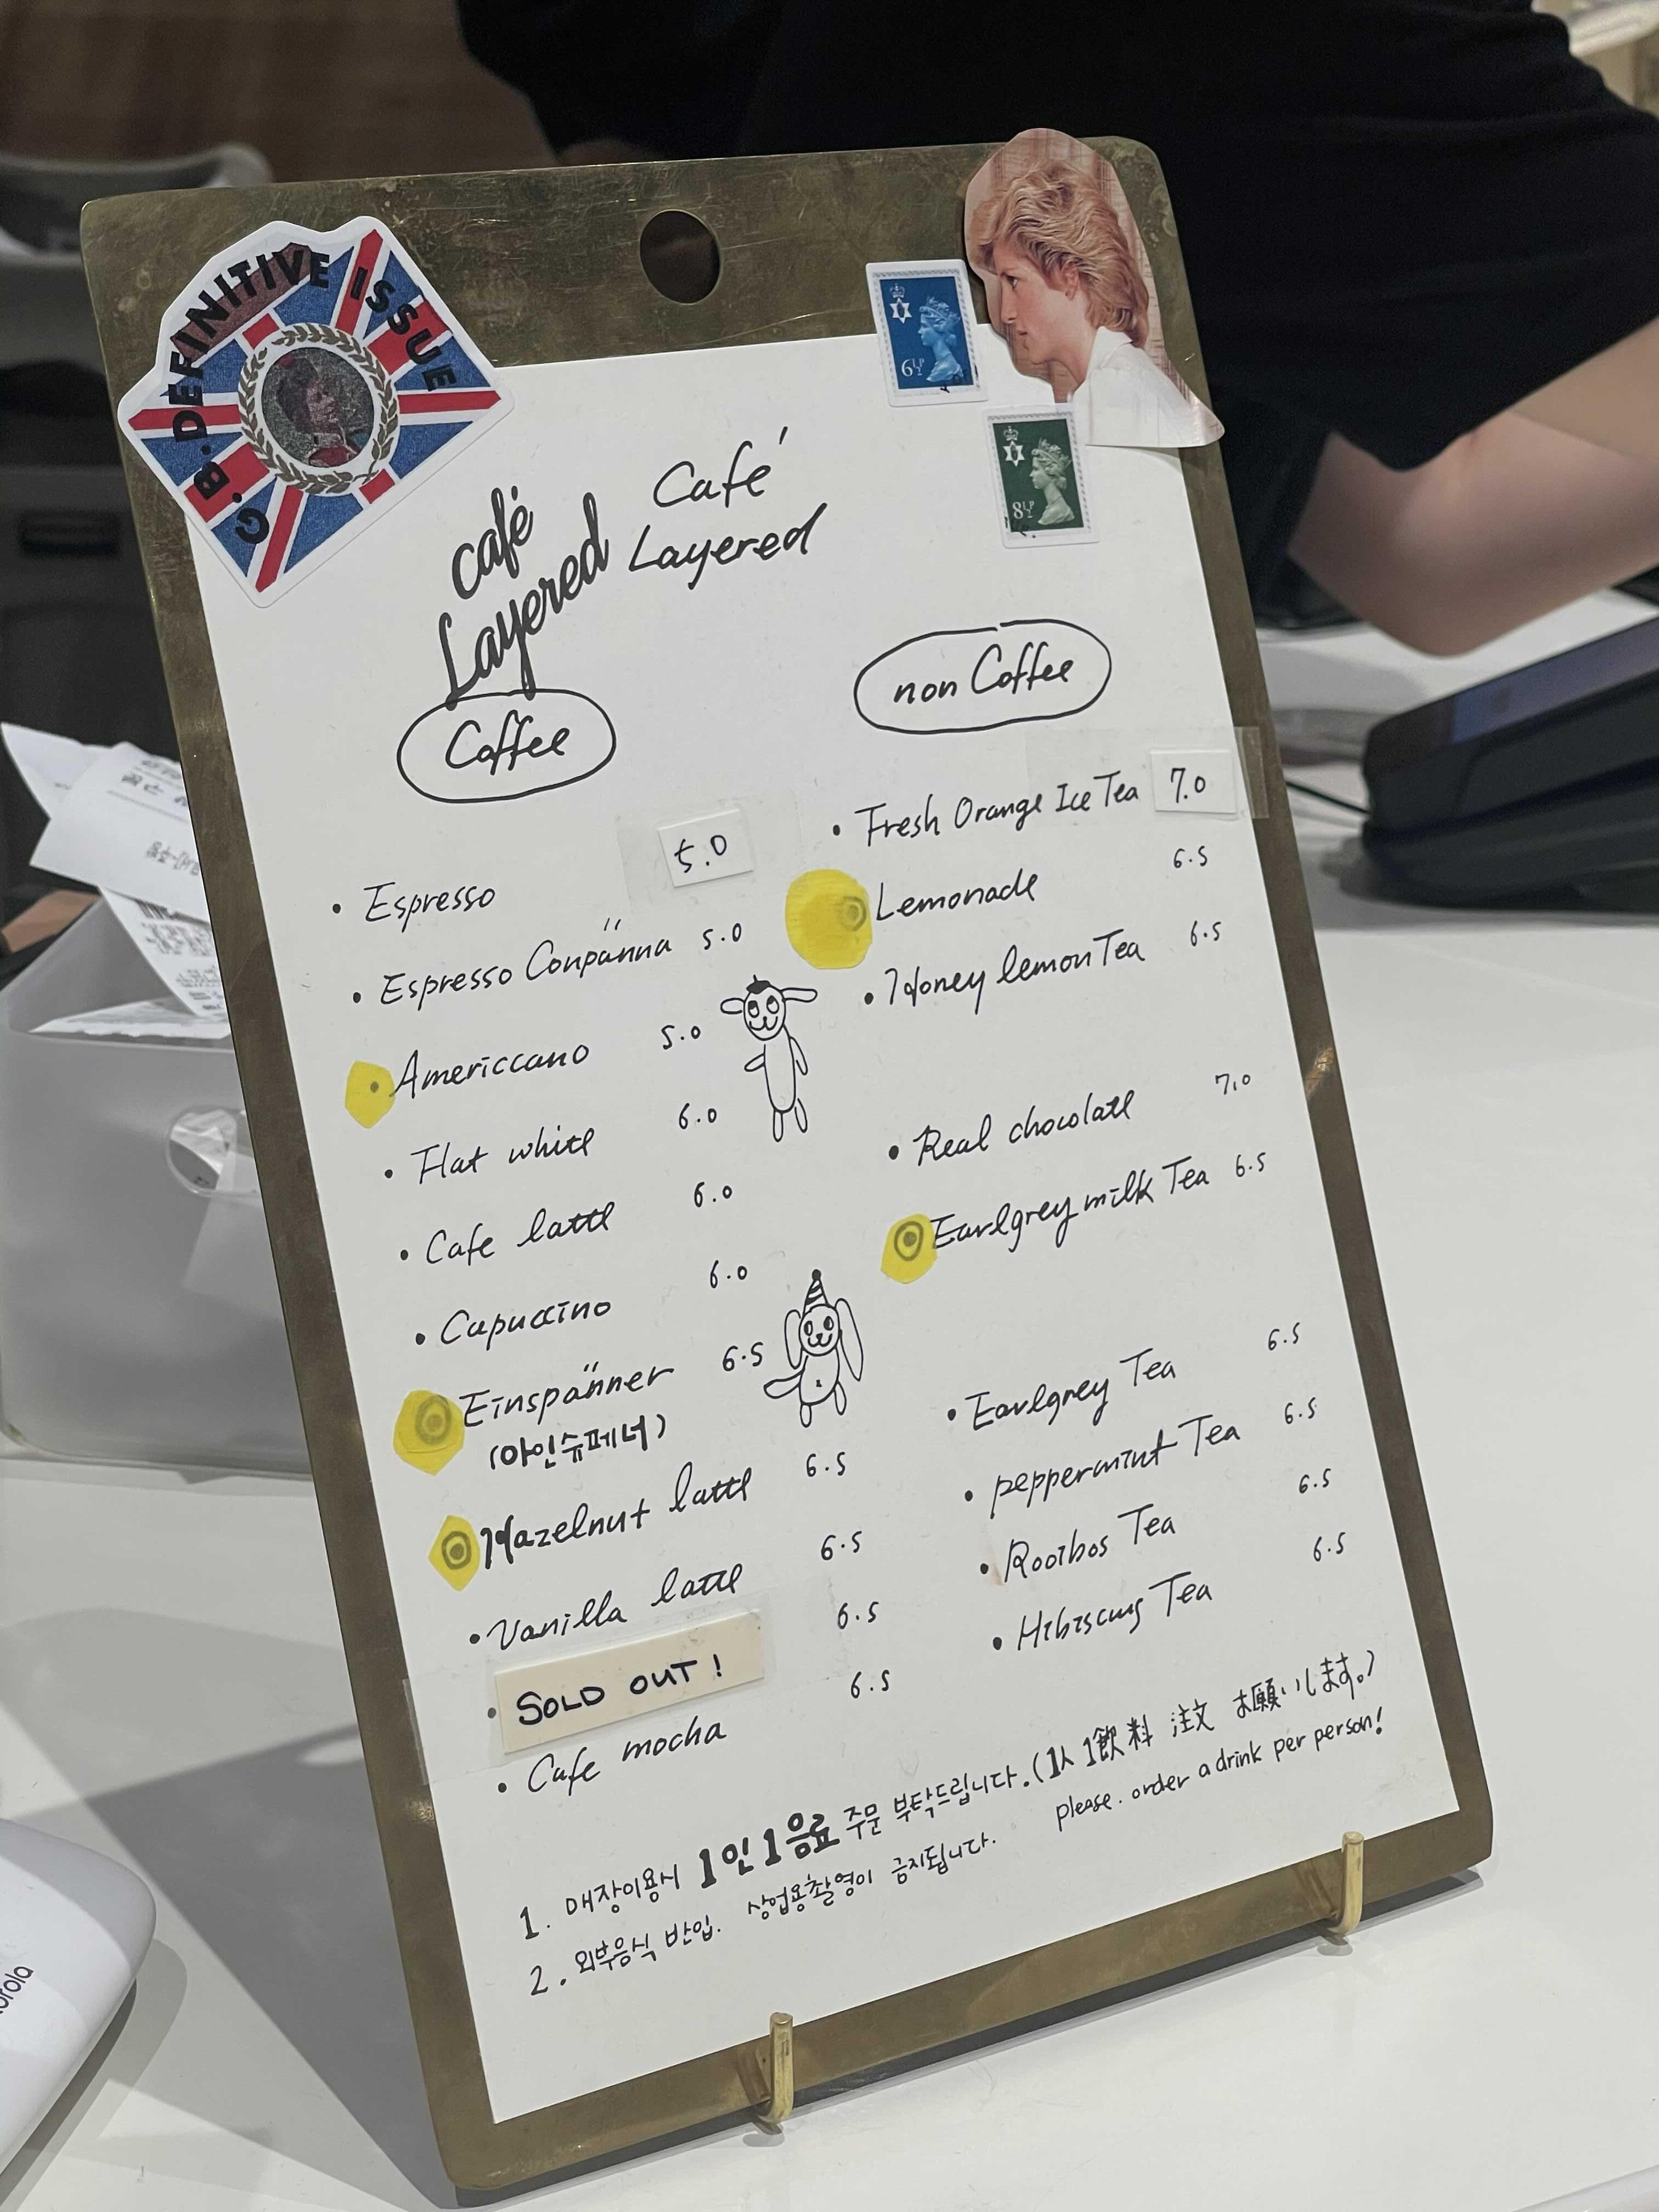 G.B. DEFINITIVE ISSUE
6½P
8½P
café
Layered
Café
Layered
Coffee
• Espresso 5.0
• Espresso Conpänna 5.0
• Americcano 5.0
• Flat white 6.0
• Cafe latte 6.0
• Capuccino 6.0
Einspänner 6.5
(아인슈페너)
Hazelnut latte 6.5
• Vanilla latte 6.5
• SOLD OUT! 6.5
• Cafe mocha 6.5
non Coffee
• Fresh Orange Ice Tea 7.0
Lemonade 6.5
• Honey lemon Tea 6.5
• Real chocolate 7.0
Earlgrey milk Tea 6.5
• Earlgrey Tea 6.5
• peppermint Tea 6.5
• Rooibos Tea 6.5
• Hibiscus Tea 6.5
1. 매장이용시 1인 1음료 주문 부탁드립니다. (1人 1飲料 注文 お願いします。)
please. order a drink per person!
2. 외부음식 반입. 상업용촬영이 금지됩니다.